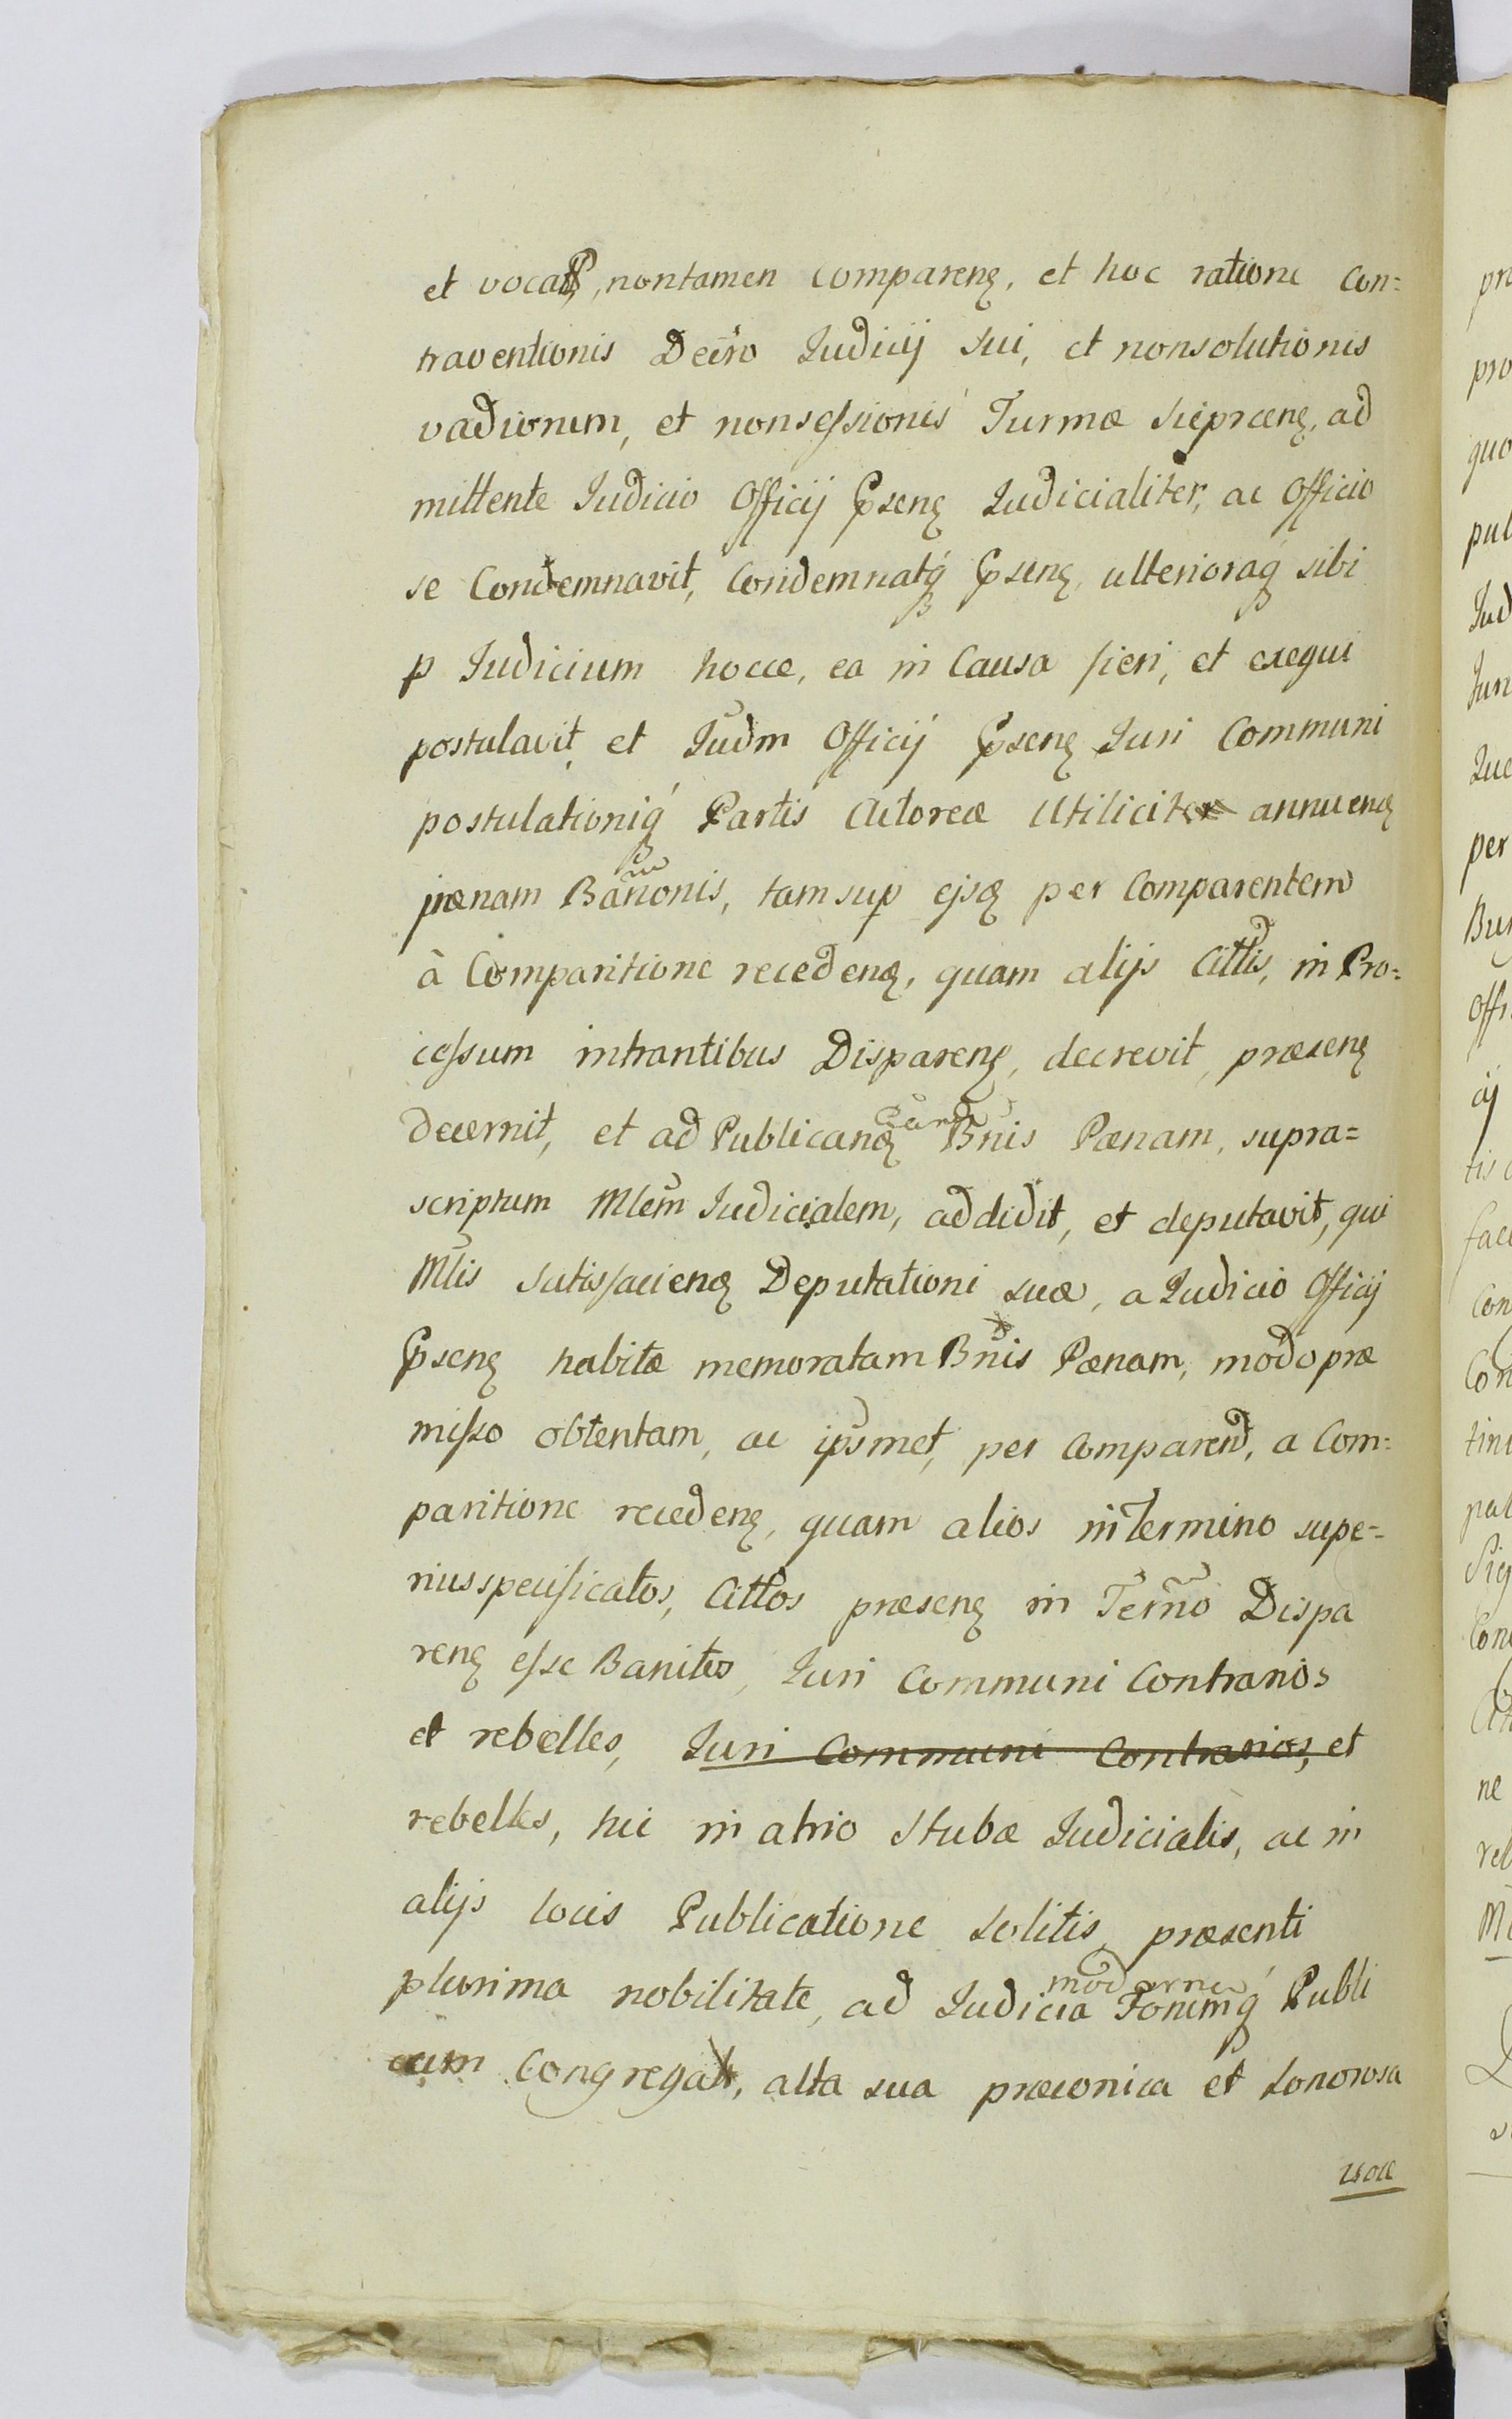 et vocat, nontamen comparenꝫ, et hoc ratione Con=
traventionis Decro Judicij sui, et nonsolutionis
vadiorum, et nonsessionis Turmæ siepræenꝫ, ad
mittente Judicio Officij Ppsenꝫ Judicialiter, ac Officio
se Condemnavit, Condemnatq Ppsenꝫ, ulterioraq sibi
p Judicium hocce, ea in Causa fieri, et exequi
postulavit, et Judm Officij Ppsenꝫ Juri Communi
postulationiq Partis Actoreæ Utiliciter annuenꝫ
pænam Banonis, tam sup ejsꝫ per Comparentem
à Comparitione recedenꝫ, quam alijs Cittis, in Pro=
cessum intrantibus Disparenꝫ, decrevit, præsenꝫ
decernit, et ad Publicanꝫ Bnis Pænam, supra=
scriptum Mlem Judicialem, addidit, et deputavit, qui
Mlis satisfacienꝫ Deputationi suæ, a Judicio Officij
Ppsenꝫ habitæ memoratam Bnis Pænam, modo præ
misso obtentam, ac ipsmet, per Comparend, a Com=
paritione recedenꝫ, quam alios in Termino supe=
riusspecificatos, Cittos præsenꝫ in Termo Dispa
renꝫ esse Banitos, Juri Communi Contrarios
et rebelles, Juri Communi Contrarios, et
rebelles, hic in atrio Stubæ Judicialis, ac in
alijs locis Publicatione solitis, præsenti
plurima nobilitate, ad Judicia moderna Forumq Publi
cum Congregat, alta sua præconica et sonorosa
voce
pro
quo
per
ne